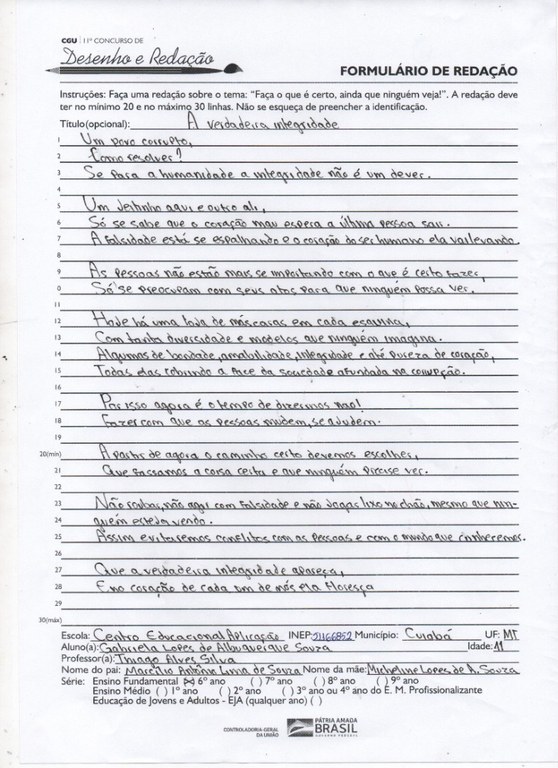 CGU | 11º CONCURSO DE
Desenho e Redação
FORMULÁRIO DE REDAÇÃO
Instruções: Faça uma redação sobre o tema: "Faça o que é certo, ainda que ninguém veja!". A redação deve
ter no mínimo 20 e no máximo 30 linhas. Não se esqueça de preencher a identificação.
Título(opcional): A verdadeira integridade
1 Um povo corrupto,
2 Como resolver?
3 Se para a humanidade a integridade não é um dever.
4
5 Um jeitinho aqui e outro ali,
6 Só se sabe que o coração mau espera a última pessoa sair.
7 A falsidade está se espalhando e o coração do ser humano ela vai levando.
8
9 As pessoas não estão mais se importando com o que é certo fazer,
0 Só se preocupam com seus atos para que ninguém possa ver.
11
12 Hoje há uma loja de máscaras em cada esquina,
13 Com tanta diversidade e modelos que ninguém imagina.
14 Algumas de bondade, amabilidade, integridade e até pureza de coração,
15 Todas elas cobrindo a face da sociedade afundada na corrupção.
16
17 Por isso agora é o tempo de dizermos não!
18 Fazer com que as pessoas mudem, se ajudem.
19
20(min) A partir de agora o caminho certo devemos escolher,
21 Que façamos a coisa certa e que ninguém precise ver.
22
23 Não roubar, não agir com falsidade e não jogar lixo no chão, mesmo que nin-
24 guém esteja vendo.
25 Assim evitaremos conflitos com as pessoas e com o mundo que conhecemos.
26
27 Que a verdadeira integridade apareça,
28 E no coração de cada um de nós ela floresça
29
30(máx)
Escola: Centro Educacional Aplicação INEP: 51166852 Município: Cuiabá UF: MT
Aluno(a): Gabriela Lopes de Albuquerque Souza Idade: 11
Professor(a): Thiago Alves Silva
Nome do pai: Marcílio Antônio Lima de Souza Nome da mãe: Micheline Lopes de A. Souza
Série: Ensino Fundamental (x) 6º ano ( ) 7º ano ( ) 8º ano ( ) 9º ano
Ensino Médio ( ) 1º ano ( ) 2º ano ( ) 3º ano ou 4º ano do E. M. Profissionalizante
Educação de Jovens e Adultos - EJA (qualquer ano) ( )
CONTROLADORIA-GERAL
DA UNIÃO
PÁTRIA AMADA
BRASIL
GOVERNO FEDERAL